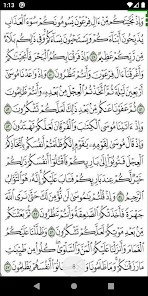 1:13
وَإِذْ نَجَّيْنَٰكُم مِّنْ ءَالِ فِرْعَوْنَ يَسُومُونَكُمْ سُوٓءَ ٱلْعَذَابِ
يُذَبِّحُونَ أَبْنَآءَكُمْ وَيَسْتَحْيُونَ نِسَآءَكُمْ وَفِى ذَٰلِكُم بَلَآءٌ
مِّن رَّبِّكُمْ عَظِيمٌ ٤٩ وَإِذْ فَرَقْنَا بِكُمُ ٱلْبَحْرَ فَأَنجَيْنَٰكُمْ
وَأَغْرَقْنَآ ءَالَ فِرْعَوْنَ وَأَنتُمْ تَنظُرُونَ ٥٠ وَإِذْ وَٰعَدْنَا مُوسَىٰٓ
أَرْبَعِينَ لَيْلَةً ثُمَّ ٱتَّخَذْتُمُ ٱلْعِجْلَ مِنۢ بَعْدِهِۦ وَأَنتُمْ ظَٰلِمُونَ ٥١
ثُمَّ عَفَوْنَا عَنكُم مِّنۢ بَعْدِ ذَٰلِكَ لَعَلَّكُمْ تَشْكُرُونَ ٥٢
وَإِذْ ءَاتَيْنَا مُوسَى ٱلْكِتَٰبَ وَٱلْفُرْقَانَ لَعَلَّكُمْ تَهْتَدُونَ ٥٣
وَإِذْ قَالَ مُوسَىٰ لِقَوْمِهِۦ يَٰقَوْمِ إِنَّكُمْ ظَلَمْتُمْ أَنفُسَكُم
بِٱتِّخَاذِكُمُ ٱلْعِجْلَ فَتُوبُوٓا۟ إِلَىٰ بَارِئِكُمْ فَٱقْتُلُوٓا۟ أَنفُسَكُمْ
ذَٰلِكُمْ خَيْرٌ لَّكُمْ عِندَ بَارِئِكُمْ فَتَابَ عَلَيْكُمْ إِنَّهُۥ هُوَ
ٱلتَّوَّابُ ٱلرَّحِيمُ ٥٤ وَإِذْ قُلْتُمْ يَٰمُوسَىٰ لَن نُّؤْمِنَ لَكَ حَتَّىٰ نَرَى ٱللَّهَ
جَهْرَةً فَأَخَذَتْكُمُ ٱلصَّٰعِقَةُ وَأَنتُمْ تَنظُرُونَ ٥٥ ثُمَّ بَعَثْنَٰكُم
مِّنۢ بَعْدِ مَوْتِكُمْ لَعَلَّكُمْ تَشْكُرُونَ ٥٦ وَظَلَّلْنَا عَلَيْكُمُ
ٱلْغَمَامَ وَأَنزَلْنَا عَلَيْكُمُ ٱلْمَنَّ وَٱلسَّلْوَىٰ كُلُوا۟ مِن طَيِّبَٰتِ
مَا رَزَقْنَٰكُمْ وَمَا ظَلَمُونَا وَلَٰكِن كَانُوٓا۟ أَنفُسَهُمْ يَظْلِمُونَ ٥٧